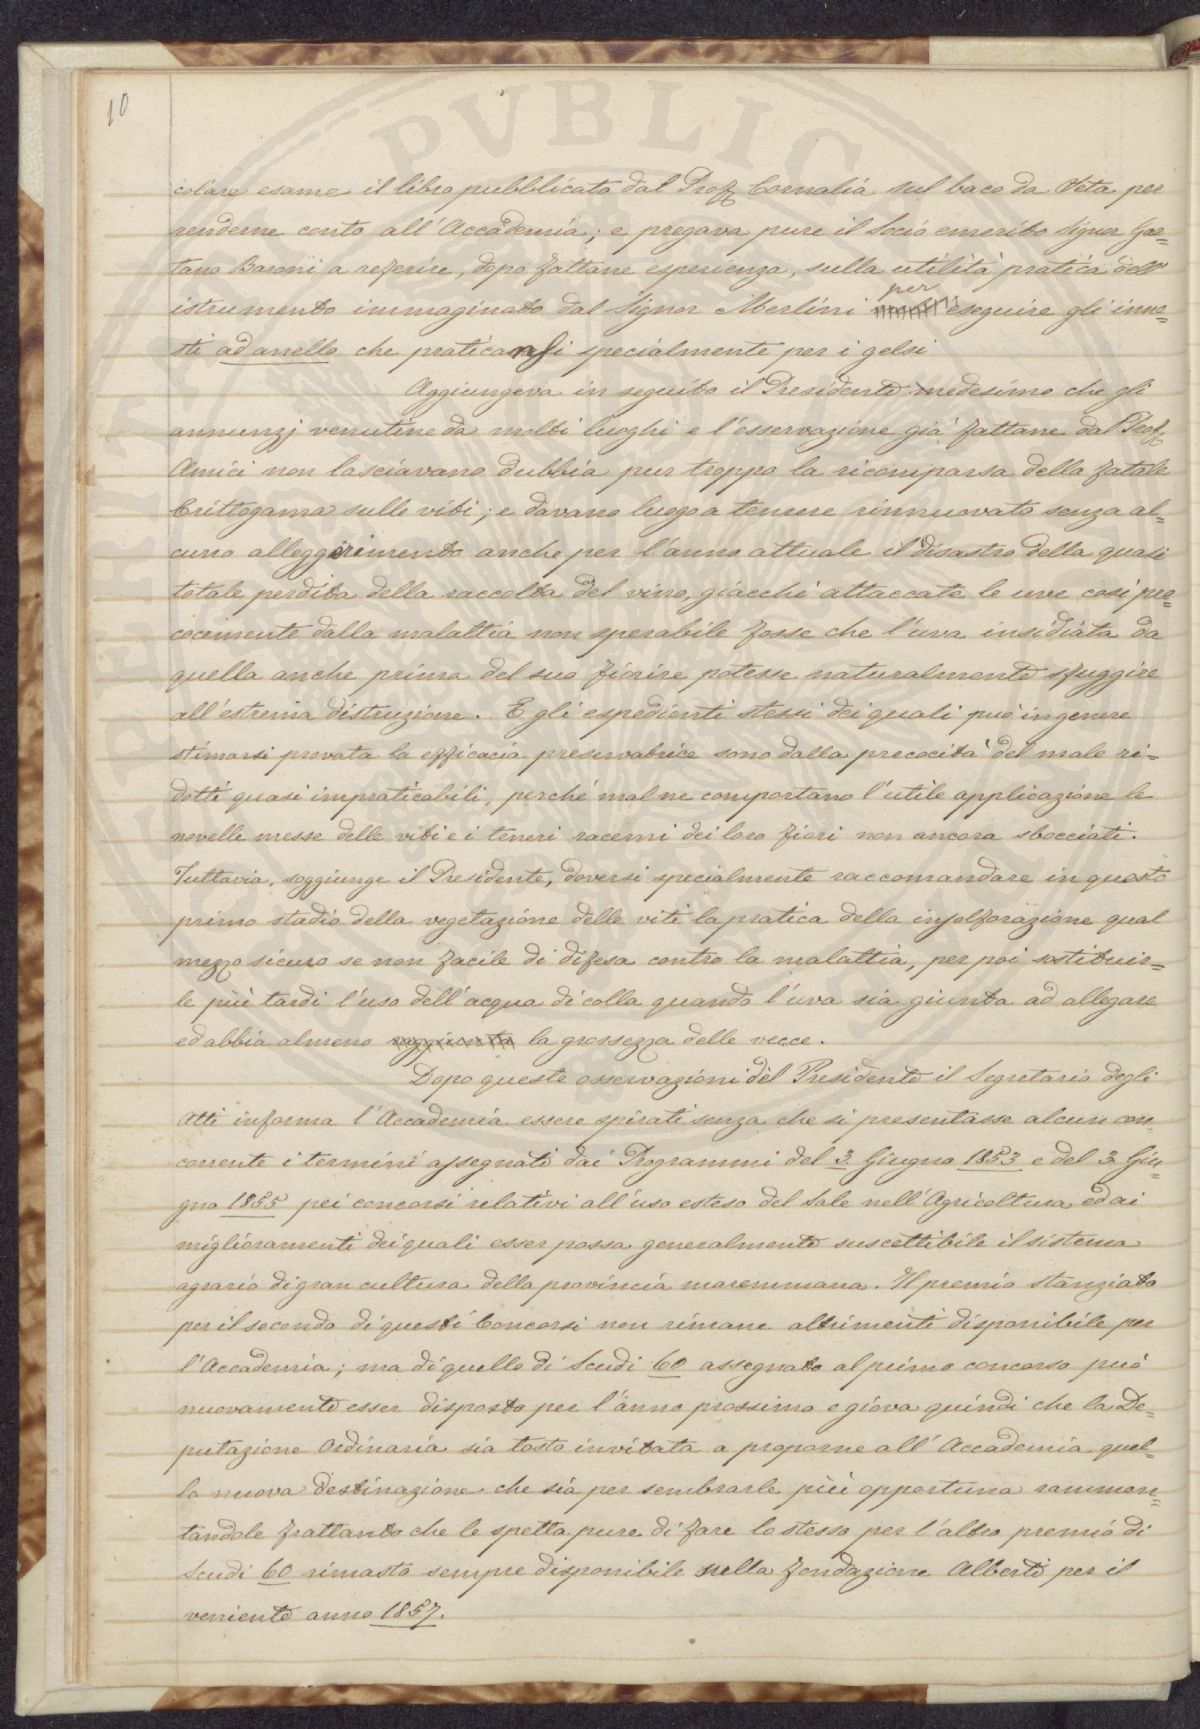 10
PVBLIC
colare esame il libro pubblicato dal Prof. Cornalia sul baco da Seta per
renderne conto all'Accademia; e pregava pure il Socio emerito Signor Gae=
tano Baroni a referire, dopo fattane esperienza, sulla utilità pratica dell'
istrumento immaginato dal Signor Merlini per eseguire gli inne=
sti ad anello che praticansi specialmente per i gelsi
Aggiungeva in seguito il Presidente medesimo che gli
annunzj venutine da molti luoghi e l'osservazione già fattane dal Prof.
Amici non lasciavano dubbia pur troppo la ricomparsa della fatale
Crittogama sulle viti; e davano luogo a temere rinnuovato senza al=
cuno alleggerimento anche per l'anno attuale il disastro della quasi
totale perdita della raccolta del vino, giacchè attaccate le uve così pre=
cocemente dalla malattia non sperabile fosse che l'uva insidiata da
quella anche prima del suo fiorire potesse naturalmente sfuggire
all'estrema distruzione. E gli espedienti stessi dei quali può in genere
stimarsi provata la efficacia preservatrice sono dalla precocità del male ri=
dotti quasi impraticabili, perchè mal ne comportano l'utile applicazione le
novelle messe delle viti e i teneri racemi dei loro fiori non ancora sbocciati.
Tuttavia, soggiunge il Presidente, doversi specialmente raccomandare in questo
primo stadio della vegetazione delle viti la pratica della insolforazione qual
mezzo sicuro se non facile di difesa contro la malattia, per poi sostituir=
le più tardi l'uso dell'acqua di colla quando l'uva sia giunta ad allegare
ed abbia almeno raggiunta la grossezza delle vecce.
Dopo queste osservazioni del Presidente il Segretario degli
Atti informa l'Accademia essere spirati senza che si presentasse alcun con=
corrente i termini assegnati dai Programmi del 3. Giugno 1853 e del 3 Giu=
gno 1855 pei concorsi relativi all'uso esteso del Sale nell'Agricoltura ed ai
miglioramenti dei quali esser possa generalmente suscettibile il sistema
agrario di gran cultura della provincia maremmana. Il premio stanziato
per il secondo di questi Concorsi non rimane altrimenti disponibile per
l'Accademia; ma di quello di Scudi 60 assegnato al primo concorso può
nuovamente esser disposto per l'anno prossimo e giova quindi che la De=
putazione Ordinaria sia tosto invitata a proporne all'Accademia quel=
la nuova destinazione che sia per sembrarle più opportuna rammen=
tandole frattanto che le spetta pure di fare lo stesso per l'altro premio di
Scudi 60 rimasto sempre disponibile nella fondazione Alberti per il
veniente anno 1857.